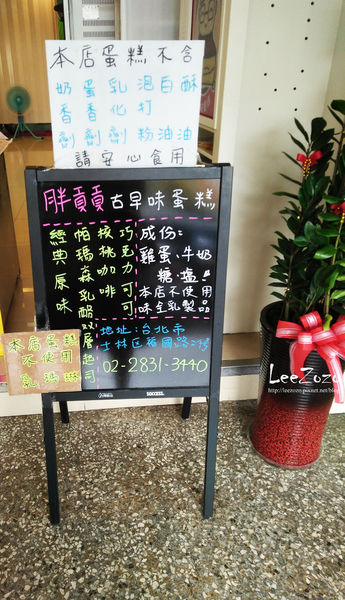 本店蛋糕不含
奶蛋乳泡白酥
香香化打
劑劑劑粉油油
請安心食用
胖貢貢古早味蛋糕
經典原味
帕瑪森乳酪
核桃咖啡
巧克力可可
雙層起司
成份:
雞蛋、牛奶
糖、鹽
本店不使用
味全乳製品
地址:台北市
士林區福國路
02-2831-3440
本店蛋糕
不使用
乳瑪琳
LeeZozo